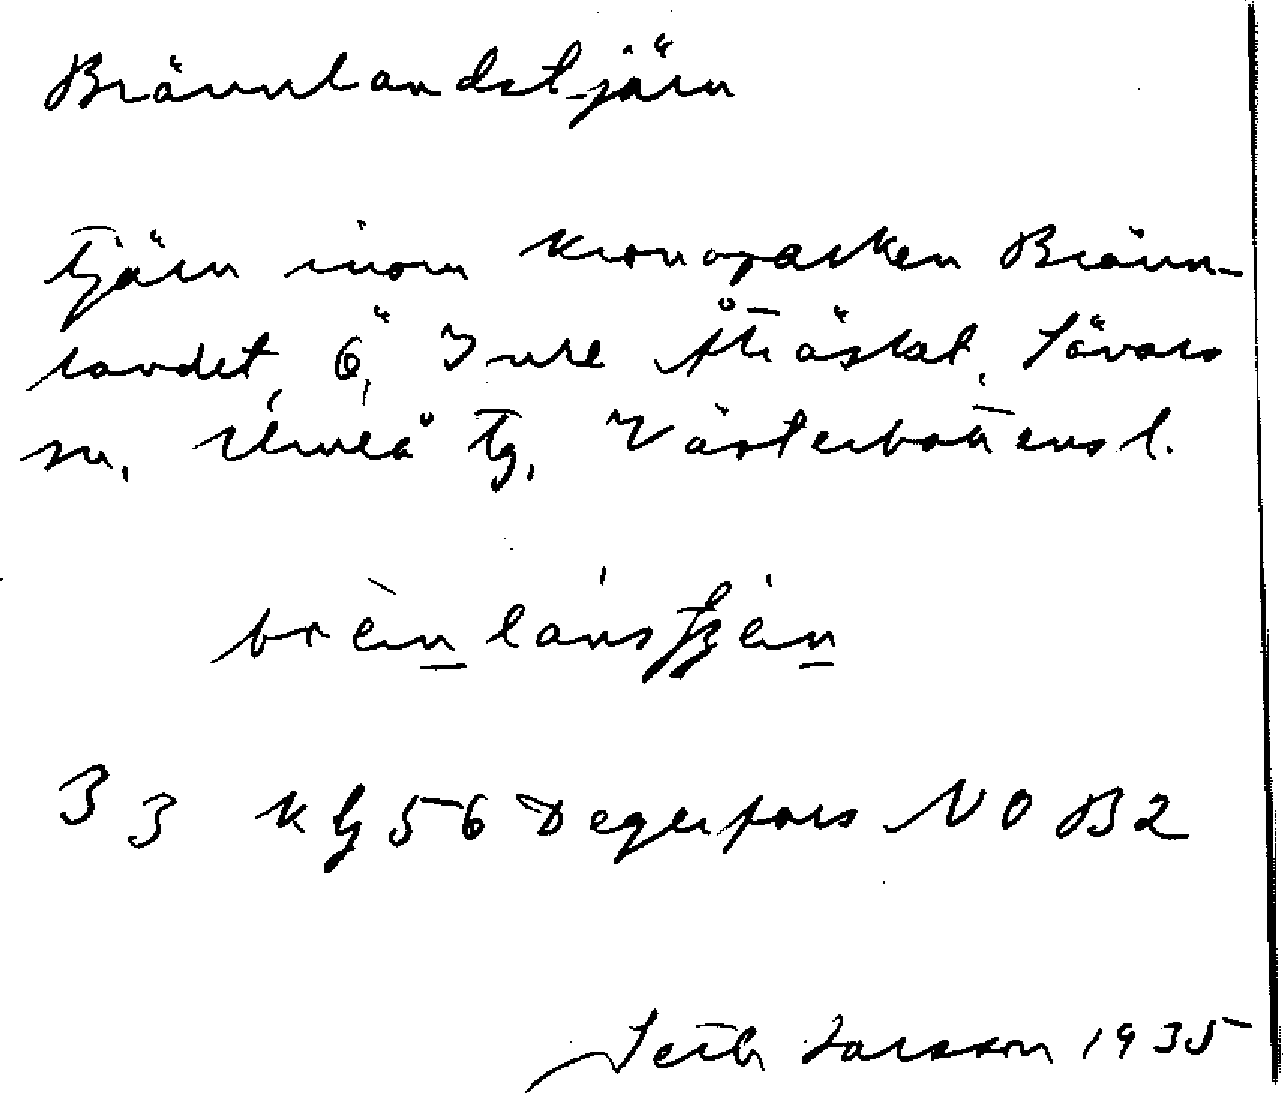 Brännlandstjärn
tjärn inom kronoparken Bränn-
landet, ö, Inre Åträsket, Sävars
sn, Umeå tg, Västerbottens l.
brèn lans
33 k bj 56 Degerfors NO B2
Seth Larsson 1935